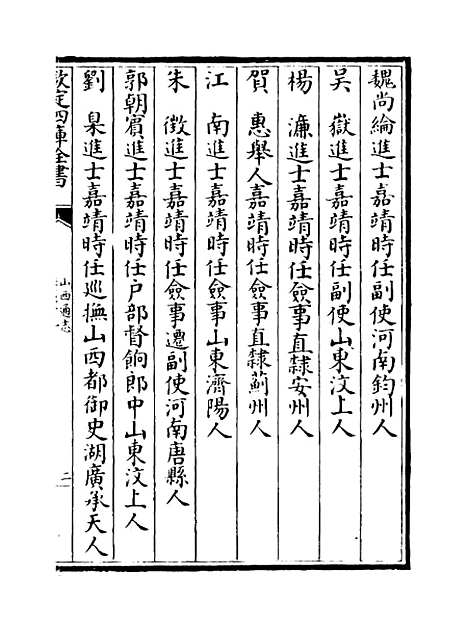 魏尚綸進士嘉靖時任副使河南鈞州人
吴　嶽進士嘉靖時任副使山東汶上人
楊　濂進士嘉靖時任僉事直隸安州人
賀　惠舉人嘉靖時任僉事直隸薊州人
江　南進士嘉靖時任僉事山東濟陽人
朱　徴進士嘉靖時任僉事遷副使河南唐縣人
郭朝賔進士嘉靖時任户部督餉郎中山東汶上人
劉　臬進士嘉靖時任巡撫山西都御史湖廣承天人
欽定四庫全書
山西通志
二